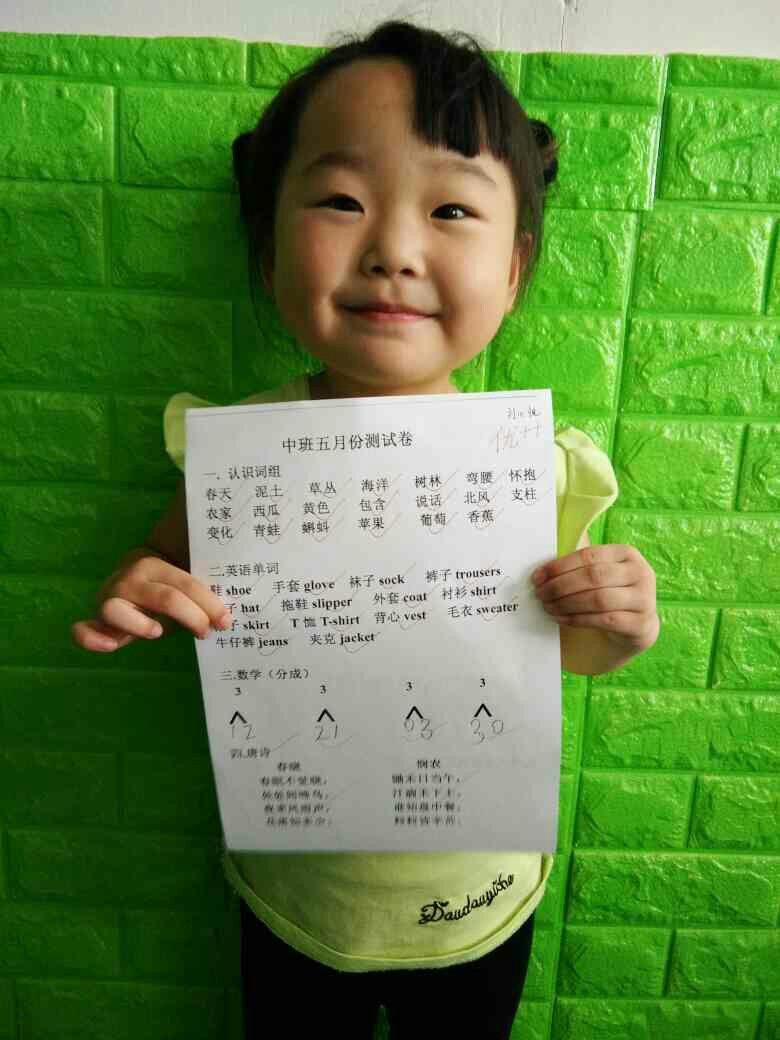 优++
中班五月份测试卷
一. 认识词组
春天 泥土 草丛 海洋 树林 弯腰 怀抱
农家 西瓜 黄色 包含 说话 北风 支柱
变化 青蛙 蝌蚪 苹果 葡萄 香蕉
二.英语单词
鞋 shoe 手套 glove 袜子 sock 裤子 trousers
子 hat 拖鞋 slipper 外套 coat 衬衫 shirt
子 skirt T 恤 T-shirt 背心 vest 毛衣 sweater
牛仔裤 jeans 夹克 jacket
三.数学（分成）
3 3 3 3
1 2 2 1 0 3 3 0
四.唐诗
春晓 悯农
春眠不觉晓， 锄禾日当午，
处处闻啼鸟； 汗滴禾下土；
夜来风雨声， 谁知盘中餐，
花落知多少； 粒粒皆辛苦；